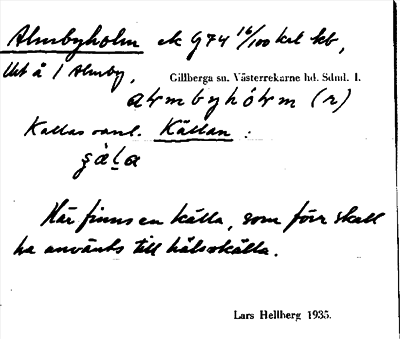 Almbyholm ek G74 16/100 krt kb,
Utt å 1 Almby,
Gillberga sn. Västerrekarne hd. Sdml. I.
Kallas vanl. Källan :
Här finns en källa, som förr skall
ha använts till hälsokälla.
Lars Hellberg 1935.